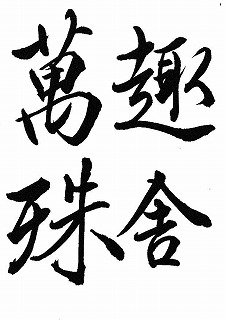 趣舍
萬殊